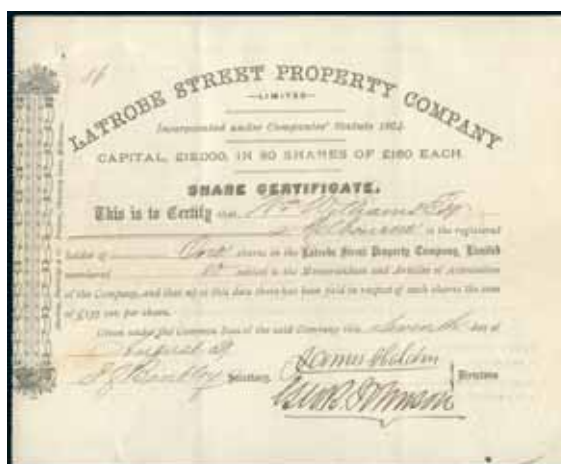 LATROBE STREET PROPERTY COMPANY
—LIMITED—
Incorporated under Companies' Statute 1864.
CAPITAL, £12,000, IN 80 SHARES OF £150 EACH.
SHARE CERTIFICATE.
This is to Certify that Wm Williams Esq
of Melbourne is the registered
holder of One shares in the Latrobe Street Property Company, Limited
numbered 80 subject to the Memorandum and Articles of Association
of the Company, and that up to this date there has been paid in respect of such shares the sum
of per share.
Given under the Common Seal of the said Company this eleventh day of
August
Secretary.
Directors
Geo B Johnson